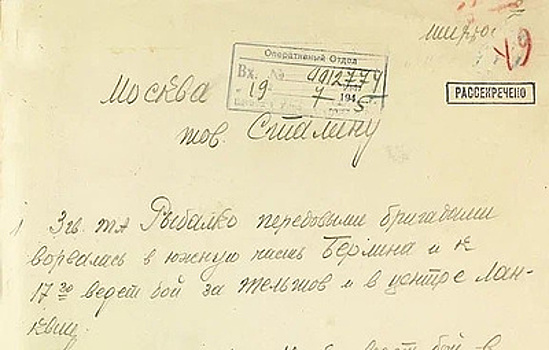 19
Оперативный Отдел
Вх. № 4012774
Москва
" 19 " 7 194 5
РАССЕКРЕЧЕНО
тов. Сталину
1 3 гв. та Рыбалко передовыми бригадами
ворвалась в южную часть Берлина и к
17 30 ведет бой за Тельтов и в центре Лан-
квиц.
ведет бой в